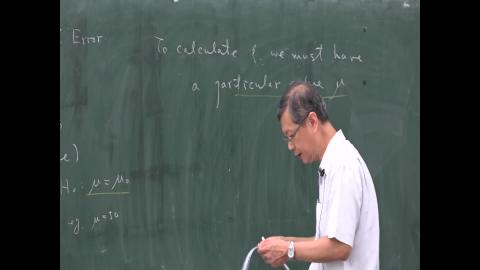 Error
To calculate β, we must have
a particular value μ
e)
H₀: μ = μ₀
eg. μ = 50